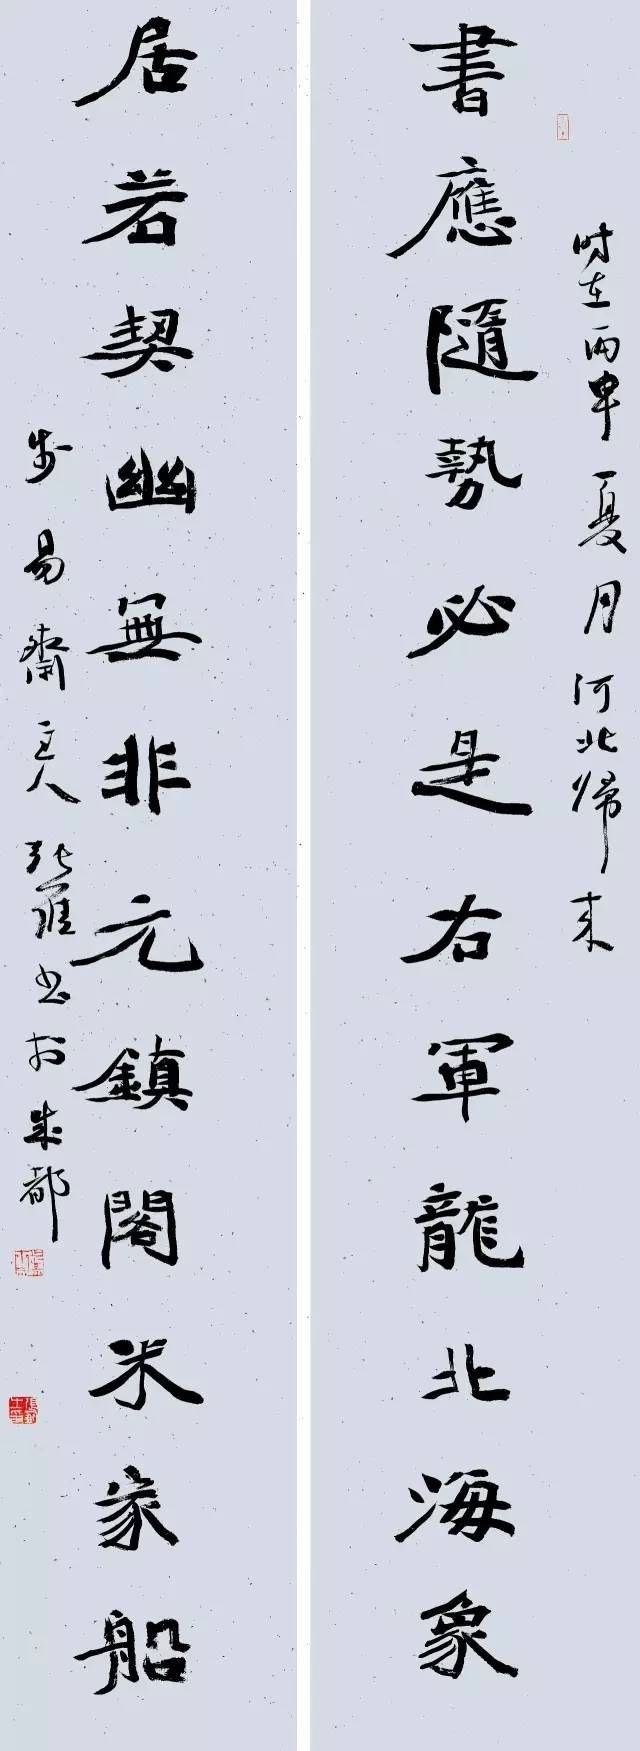 时在丙申夏月河北帰来
書應隨勢必是右軍龍北海象
居若契幽無非元鎮閣米家船
易齋主人張書於成都